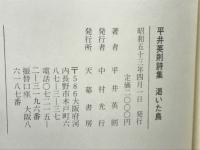 平井英則詩集 渇いた鳥
昭和五十三年四月一日 発行
定価二〇〇〇円
著者 平井英則
発行者 中村光行
発行所 天幕書房
〒586大阪府河
内長野市木戸町六
八七—三三七
電話〇七二一五
二—三一九六番
振替口座 大阪二
六一八七番